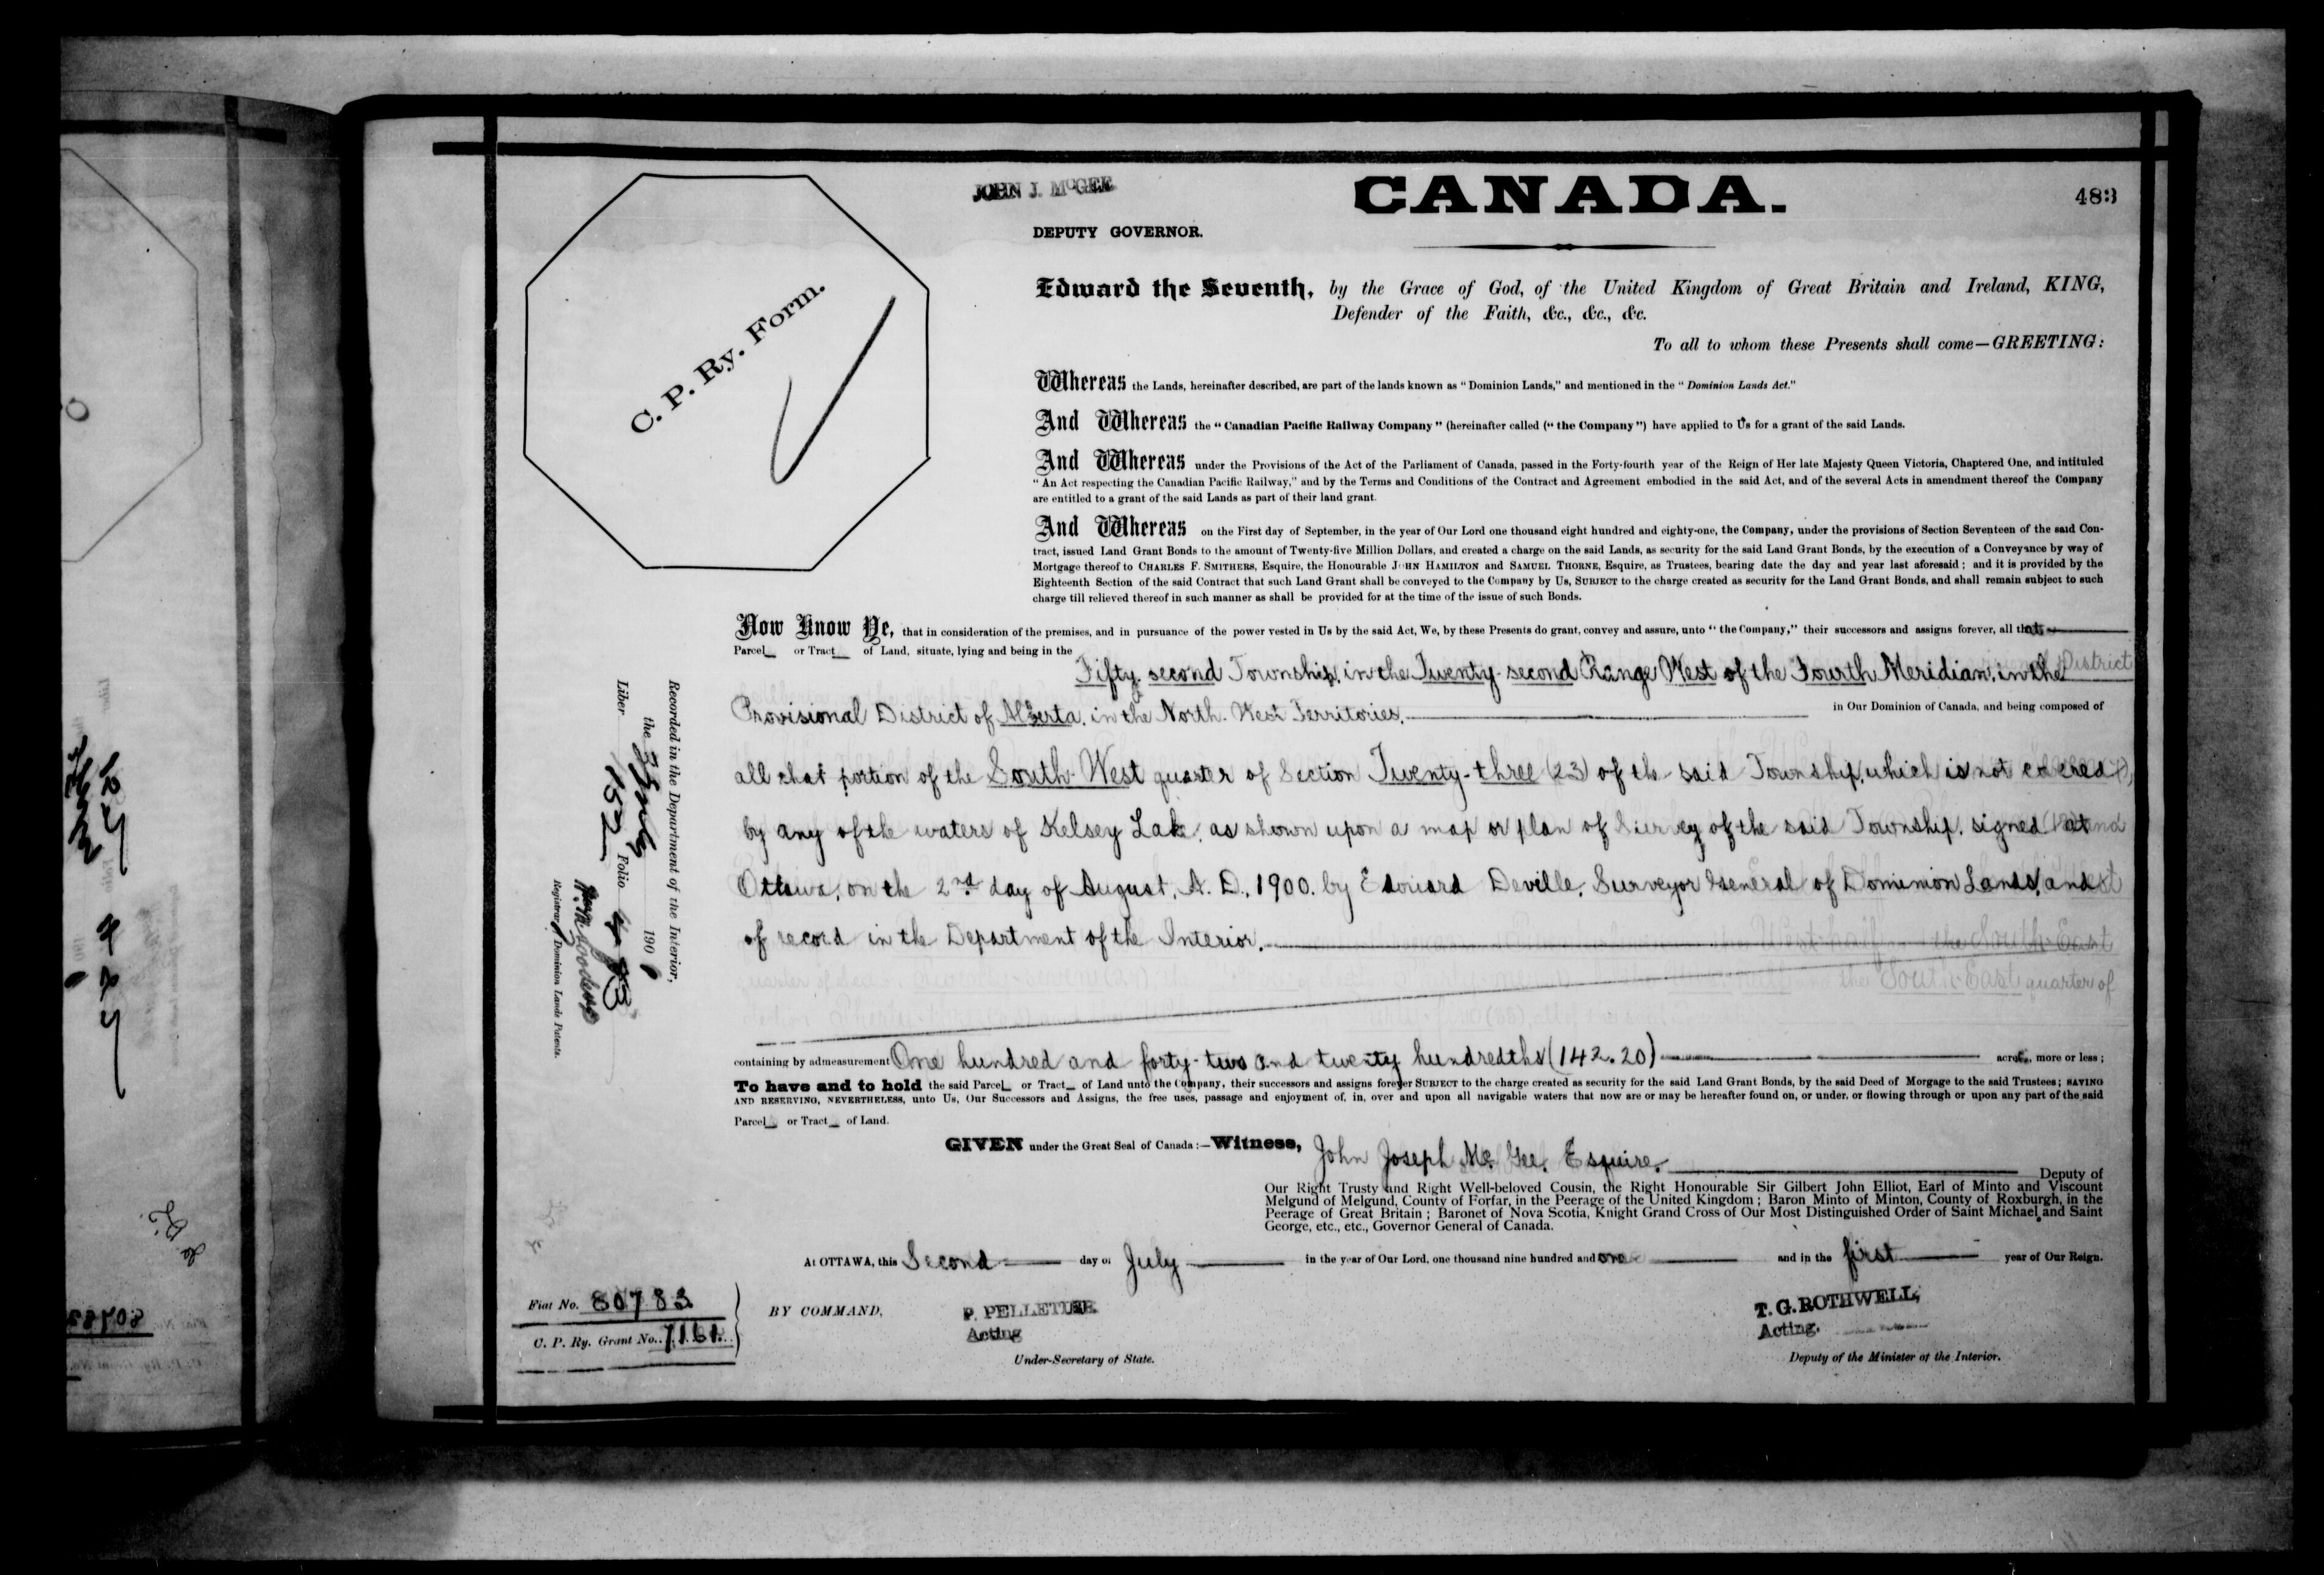 JOHN J. McGEE
DEPUTY GOVERNOR.
CANADA.
483
C. P. Ry. Form.
Edward the Seventh, by the Grace of God, of the United Kingdom of Great Britain and Ireland, KING,
Defender of the Faith, &c., &c., &c.
To all to whom these Presents shall come—GREETING:
Whereas the Lands, hereinafter described, are part of the lands known as "Dominion Lands," and mentioned in the "Dominion Lands Act."
And Whereas the "Canadian Pacific Railway Company" (hereinafter called ("the Company") have applied to Us for a grant of the said Lands.
And Whereas under the Provisions of the Act of the Parliament of Canada, passed in the Forty-fourth year of the Reign of Her late Majesty Queen Victoria, Chaptered One, and intituled
"An Act respecting the Canadian Pacific Railway," and by the Terms and Conditions of the Contract and Agreement embodied in the said Act, and of the several Acts in amendment thereof the Company
are entitled to a grant of the said Lands as part of their land grant.
And Whereas on the First day of September, in the year of Our Lord one thousand eight hundred and eighty-one, the Company, under the provisions of Section Seventeen of the said Con-
tract, issued Land Grant Bonds to the amount of Twenty-five Million Dollars, and created a charge on the said Lands, as security for the said Land Grant Bonds, by the execution of a Conveyance by way of
Mortgage thereof to CHARLES F. SMITHERS, Esquire, the Honourable JOHN HAMILTON and SAMUEL THORNE, Esquire, as Trustees, bearing date the day and year last aforesaid; and it is provided by the
Eighteenth Section of the said Contract that such Land Grant shall be conveyed to the Company by Us, SUBJECT to the charge created as security for the Land Grant Bonds, and shall remain subject to such
charge till relieved thereof in such manner as shall be provided for at the time of the issue of such Bonds.
Now Know Ye, that in consideration of the premises, and in pursuance of the power vested in Us by the said Act, We, by these Presents do grant, convey and assure, unto "the Company," their successors and assigns forever, all that
Parcel or Tract of Land, situate, lying and being in the
Fifty-second Township, in the Twenty-second Range West of the Fourth Meridian, in the
Provisional District of Alberta, in the North-West Territories, in Our Dominion of Canada, and being composed of
all that portion of the South-West quarter of Section Twenty-three (23) of the said Township, which is not covered
by any of the waters of Kelsey Lake, as shown upon a map or plan of Survey of the said Township, signed at
Ottawa, on the 2nd day of August, A. D., 1900, by Edouard Deville, Surveyor General of Dominion Lands, and
of record in the Department of the Interior.
containing by admeasurement One hundred and forty-two and twenty hundredths (142.20) acres, more or less;
To have and to hold the said Parcel or Tract of Land unto the Company, their successors and assigns forever SUBJECT to the charge created as security for the said Land Grant Bonds, by the said Deed of Morgage to the said Trustees; SAVING
AND RESERVING, NEVERTHELESS, unto Us, Our Successors and Assigns, the free uses, passage and enjoyment of, in, over and upon all navigable waters that now are or may be hereafter found on, or under, or flowing through or upon any part of the said
Parcel or Tract of Land.
GIVEN under the Great Seal of Canada:—Witness, John Joseph McGee, Esquire, Deputy of
Our Right Trusty and Right Well-beloved Cousin, the Right Honourable Sir Gilbert John Elliot, Earl of Minto and Viscount
Melgund of Melgund, County of Forfar, in the Peerage of the United Kingdom; Baron Minto of Minton, County of Roxburgh, in the
Peerage of Great Britain; Baronet of Nova Scotia, Knight Grand Cross of Our Most Distinguished Order of Saint Michael and Saint
George, etc., etc., Governor General of Canada.
At OTTAWA, this Second day of July in the year of Our Lord, one thousand nine hundred and one and in the first year of Our Reign.
Fiat No. 80783
C. P. Ry. Grant No. 7161.
BY COMMAND,
P. PELLETIER
Acting
Under-Secretary of State.
T. G. ROTHWELL,
Acting.
Deputy of the Minister of the Interior.
Recorded in the Department of the Interior,
the 3 July 1901
Liber 152 Folio 483
Registrar Dominion Lands Patents.